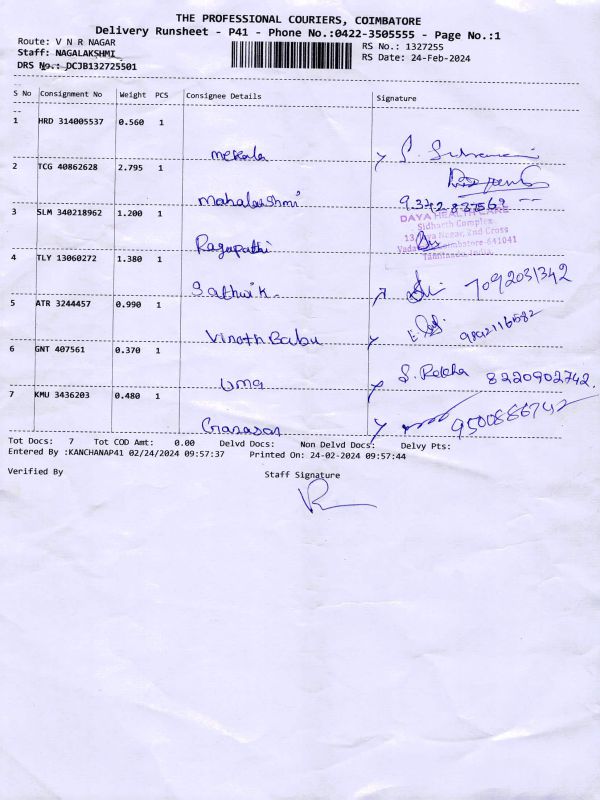 THE PROFESSIONAL COURIERS, COIMBATORE
Delivery Runsheet - P41 - Phone No.:0422-3505555 - Page No.:1
Route: V N R NAGAR RS No.: 1327255
Staff: NAGALAKSHMI RS Date: 24-Feb-2024
DRS No.: DCJB132725501
S No Consignment No Weight PCS Consignee Details Signature
1 HRD 314005537 0.560 1
mekala
2 TCG 40862628 2.795 1
Mahalakshmi
3 SLM 340218962 1.200 1
DAYA HEALTH CARE
Sidharth Complex
Nagar, 2nd Cross
Coimbatore-641041
Ragupathi
4 TLY 13060272 1.380 1
Sathwik. 7092031342
5 ATR 3244457 0.990 1
Vinoth Babu
6 GNT 407561 0.370 1
Uma S. Rekha 8220902742.
7 KMU 3436203 0.480 1
Tot Docs: 7 Tot COD Amt: 0.00 Delvd Docs: Non Delvd Docs: Delvy Pts:
Entered By :KANCHANAP41 02/24/2024 09:57:37 Printed On: 24-02-2024 09:57:44
Verified By Staff Signature